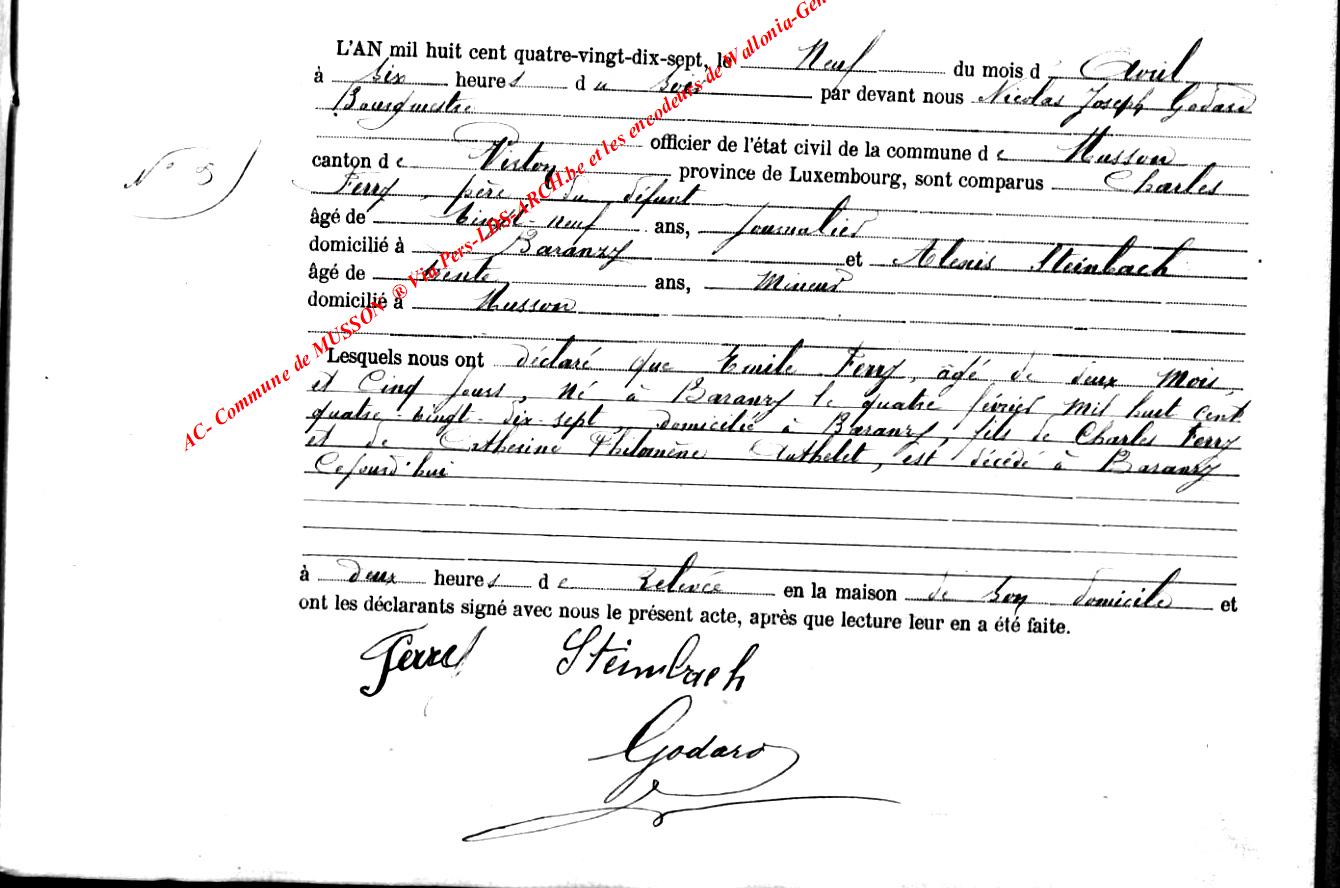 L'AN mil huit cent quatre-vingt-dix-sept, le Neuf du mois d' Avril
à Six heures du Soir par devant nous Nicolas Joseph Godard
Bourgmestre
officier de l'état civil de la commune de Musson
N° 8
canton de Virton province de Luxembourg, sont comparus Charles
Ferry, père du défunt
âgé de Vingt-neuf ans, Journalier
domicilié à Baranzy et Alexis Steinbach
âgé de trente ans, Mineur
domicilié à Musson
Lesquels nous ont déclaré que Emile Ferry, âgé de deux Mois
et Cinq jours, Né à Baranzy le quatre février Mil huit cent
quatre vingt-dix-sept, domicilié à Baranzy, fils de Charles Ferry
et de Catherine Philomène Authelet, est décédé à Baranzy
Cejourd'hui
à deux heures de Relevée en la maison de Son domicile et
ont les déclarants signé avec nous le présent acte, après que lecture leur en a été faite.
Steinbach
Godard
AC- Commune de MUSSON ® Via Pers-LDS-ARCH.be et les encodeurs de Wallonia-Gen